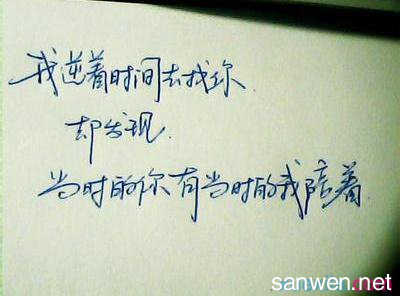 我逆着时间去找你
却发现
当时的你有当时的我陪着
sanwen.net